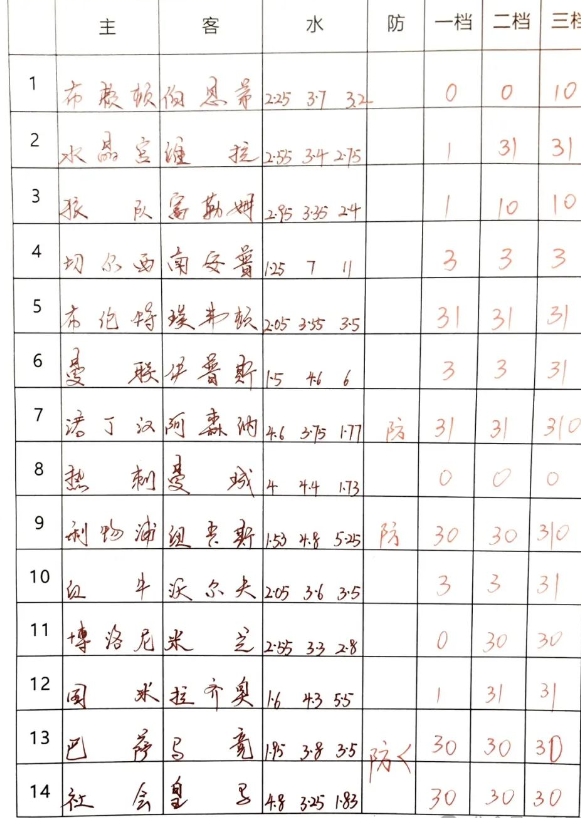 主 客 水 防 一档 二档 三档
1 布莱顿 伯恩茅 2.25 3.7 3.2 0 0 10
2 水晶宫 维拉 2.55 3.4 2.75 1 31 31
3 狼队 富勒姆 2.95 3.35 2.4 1 10 10
4 切尔西 南安普 1.25 7 11 3 3 3
5 布伦特 埃弗顿 2.05 3.55 3.5 31 31 31
6 曼联 伊普斯 1.5 4.6 6 3 3 31
7 诺丁汉 阿森纳 4.6 3.75 1.77 防 31 31 310
8 热刺 曼城 4 4.4 1.73 0 0 0
9 利物浦 纽卡斯 1.53 4.8 5.25 防 30 30 310
10 红牛 沃尔夫 2.05 3.6 3.5 3 3 31
11 博洛尼 米兰 2.55 3.3 2.8 0 30 30
12 国米 拉齐奥 1.6 4.3 5.5 1 31 31
13 巴萨 马竞 1.95 3.8 3.5 防< 30 30 30
14 社会 皇马 4.8 3.25 1.83 30 30 30